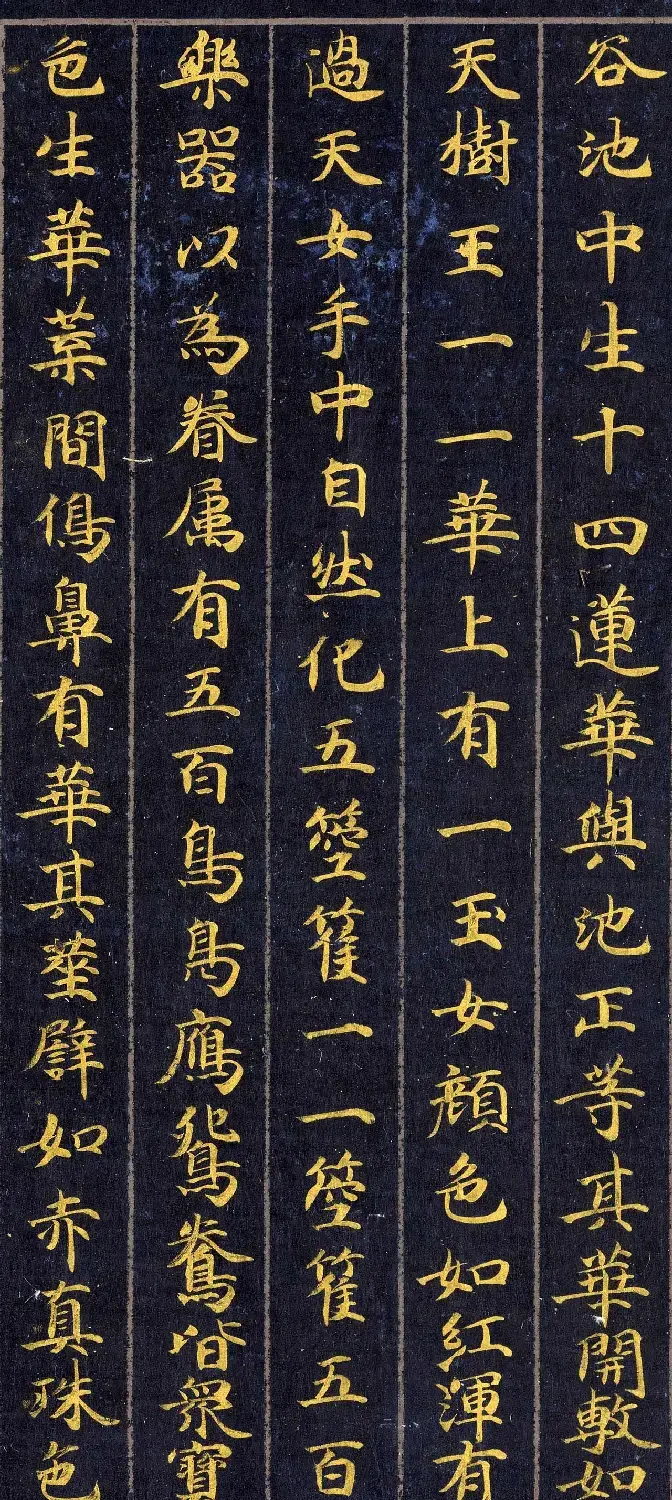 谷池中生十四蓮華與池正等其華開敷如
天樹王一一華上有一玉女顔色如紅渾有
過天女手中自然化五箜篌一一箜篌五百
樂器以為眷属有五百鳥鳥鴈鴛鴦皆眾寶
色生華葉間鳥鼻有華其莖譬如赤真珠色